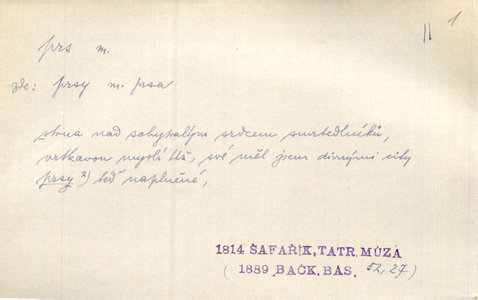 1
prs m.
zde: prsy m. prsa
stoua nad schytralým srdcem smrtedlníků,
vrtkavou myslí liš, své měl jsem divnými city
prsy ²) teď naplněné,
1814 ŠAFAŘÍK, TATR. MÚZA
( 1889 BAČK. BÁS. 52, 27)